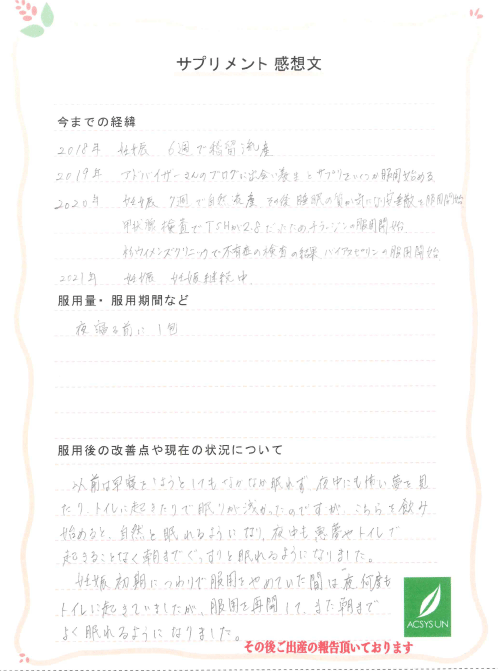 サプリメント 感想文
今までの経緯
2018年 妊娠 6週で稽留流産
2019年 アドバイザーさんのブログに出会い養生とサプリ服用始める
2020年 妊娠 7週で自然流産 その後 睡眠の質が気になり安養散を服用開始
甲状腺検査でTSHが2.8だったためチラージンの服用開始
ウィメンズクリニックで不育症の検査の結果 バイアスピリンの服用開始
2021年 妊娠 妊娠継続中
服用量・服用期間など
夜寝る前に1包
服用後の改善点や現在の状況について
以前は早寝をしようとしてもなかなか眠れず、夜中にも怖い夢を見
たり、トイレに起きたりで眠りが浅かったのですが、こちらを飲み
始めると、自然と眠れるようになり、夜中も悪夢やトイレで
起きることなく朝までぐっすりと眠れるようになりました。
妊娠初期につわりで服用をやめていた間は夜、何度も
トイレに起きていましたが、服用を再開して、また朝まで
よく眠れるようになりました。
ACSYS UN
その後ご出産の報告頂いております